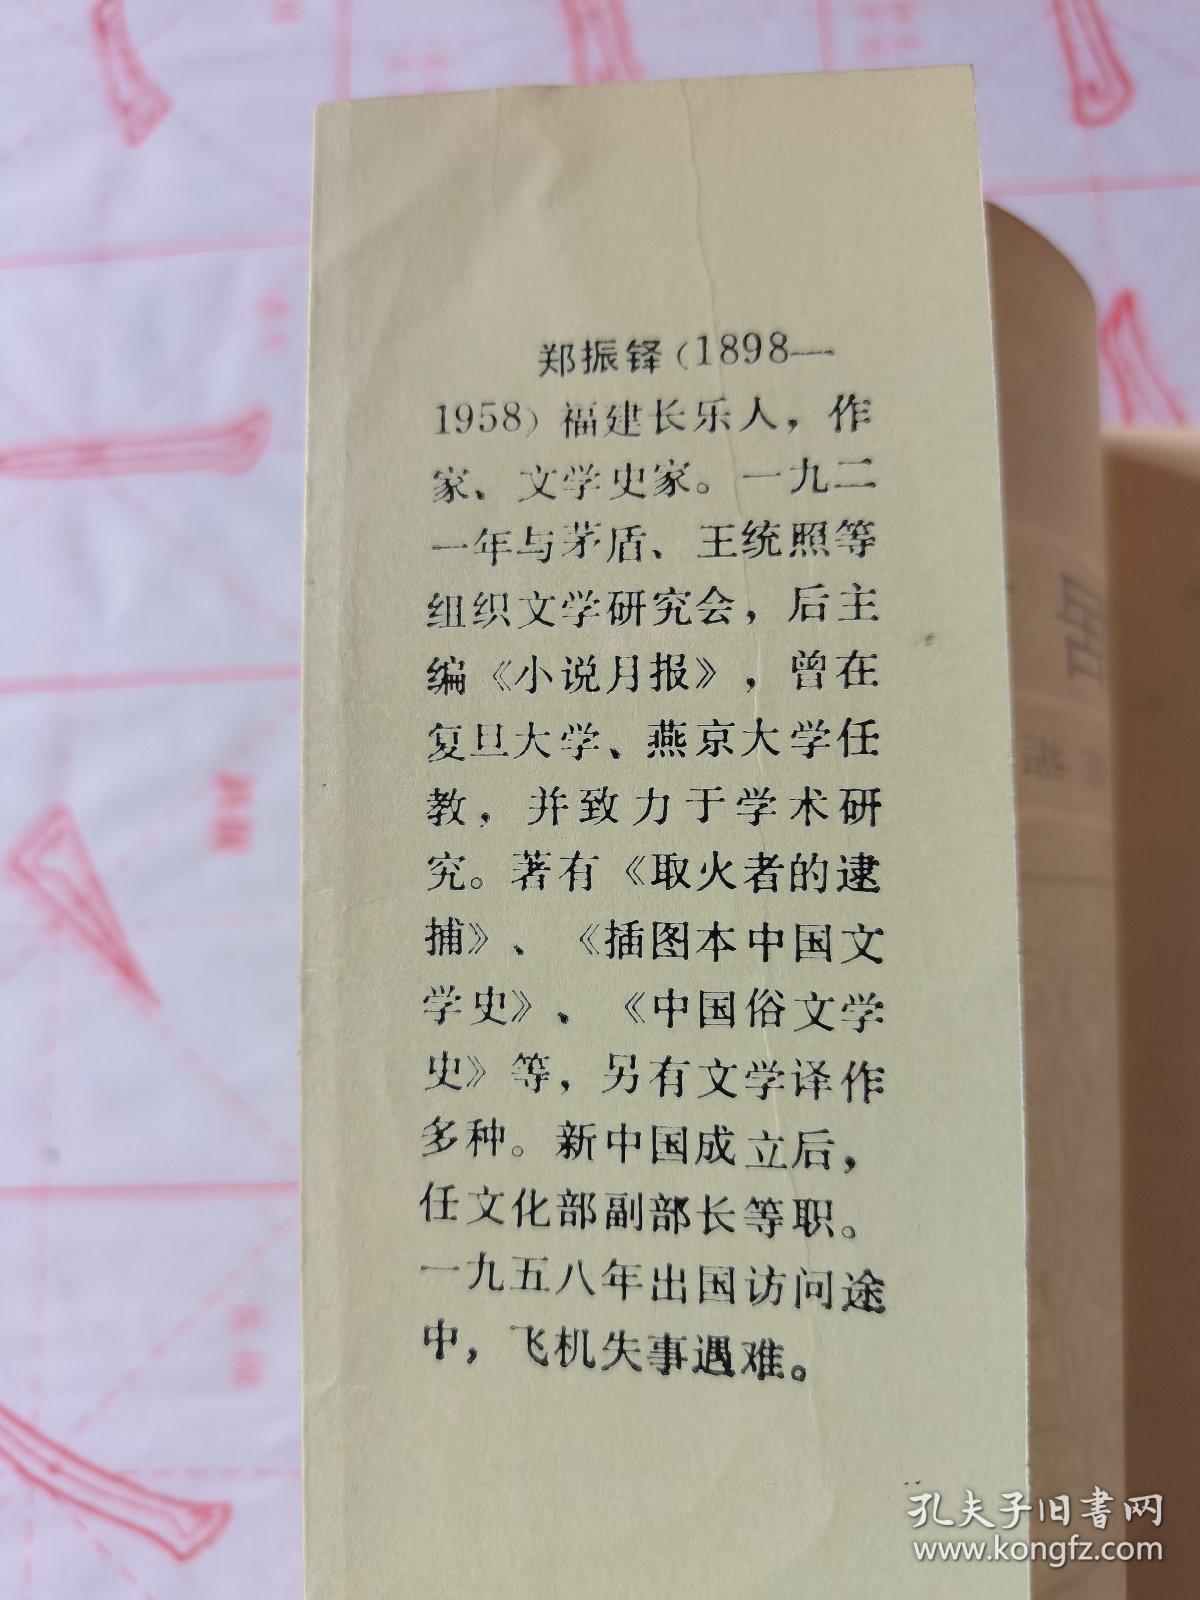 郑振铎(1898—
1958)福建长乐人，作
家、文学史家。一九二
一年与茅盾、王统照等
组织文学研究会，后主
编《小说月报》，曾在
复旦大学、燕京大学任
教，并致力于学术研
究。著有《取火者的逮
捕》、《插图本中国文
学史》、《中国俗文学
史》等，另有文学译作
多种。新中国成立后，
任文化部副部长等职。
一九五八年出国访问途
中，飞机失事遇难。
孔夫子旧书网
www.kongfz.com